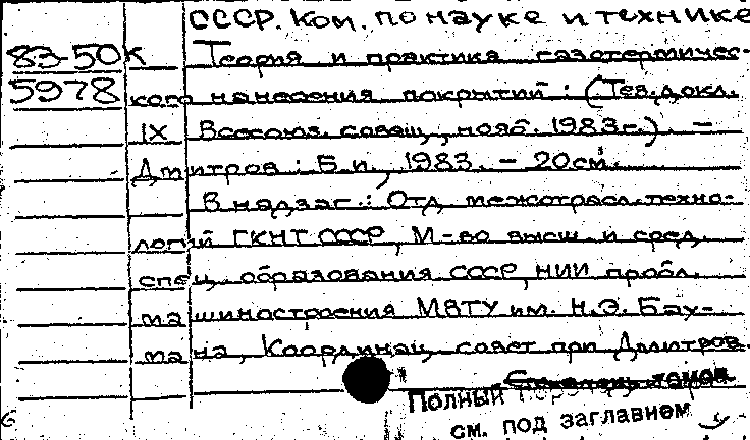 СССР. Ком. по науке и технике
83-50к Теория и практика газотермичес-
5978 кого нанесения покрытий : (Тез. докл.
IX Всесоюз. совещ., нояб. 1983 г.). —
Дмитров : Б. и., 1983. — 20 см.
В надзаг.: Отд. межотрасл. техно-
логий ГКНТ СССР, М-во высш. и сред.
спец. образования СССР, НИИ пробл.
машиностроения МВТУ им. Н.Э. Бау-
мана, Координац. совет при Дмитров.
томов
Полный
см. под заглавием